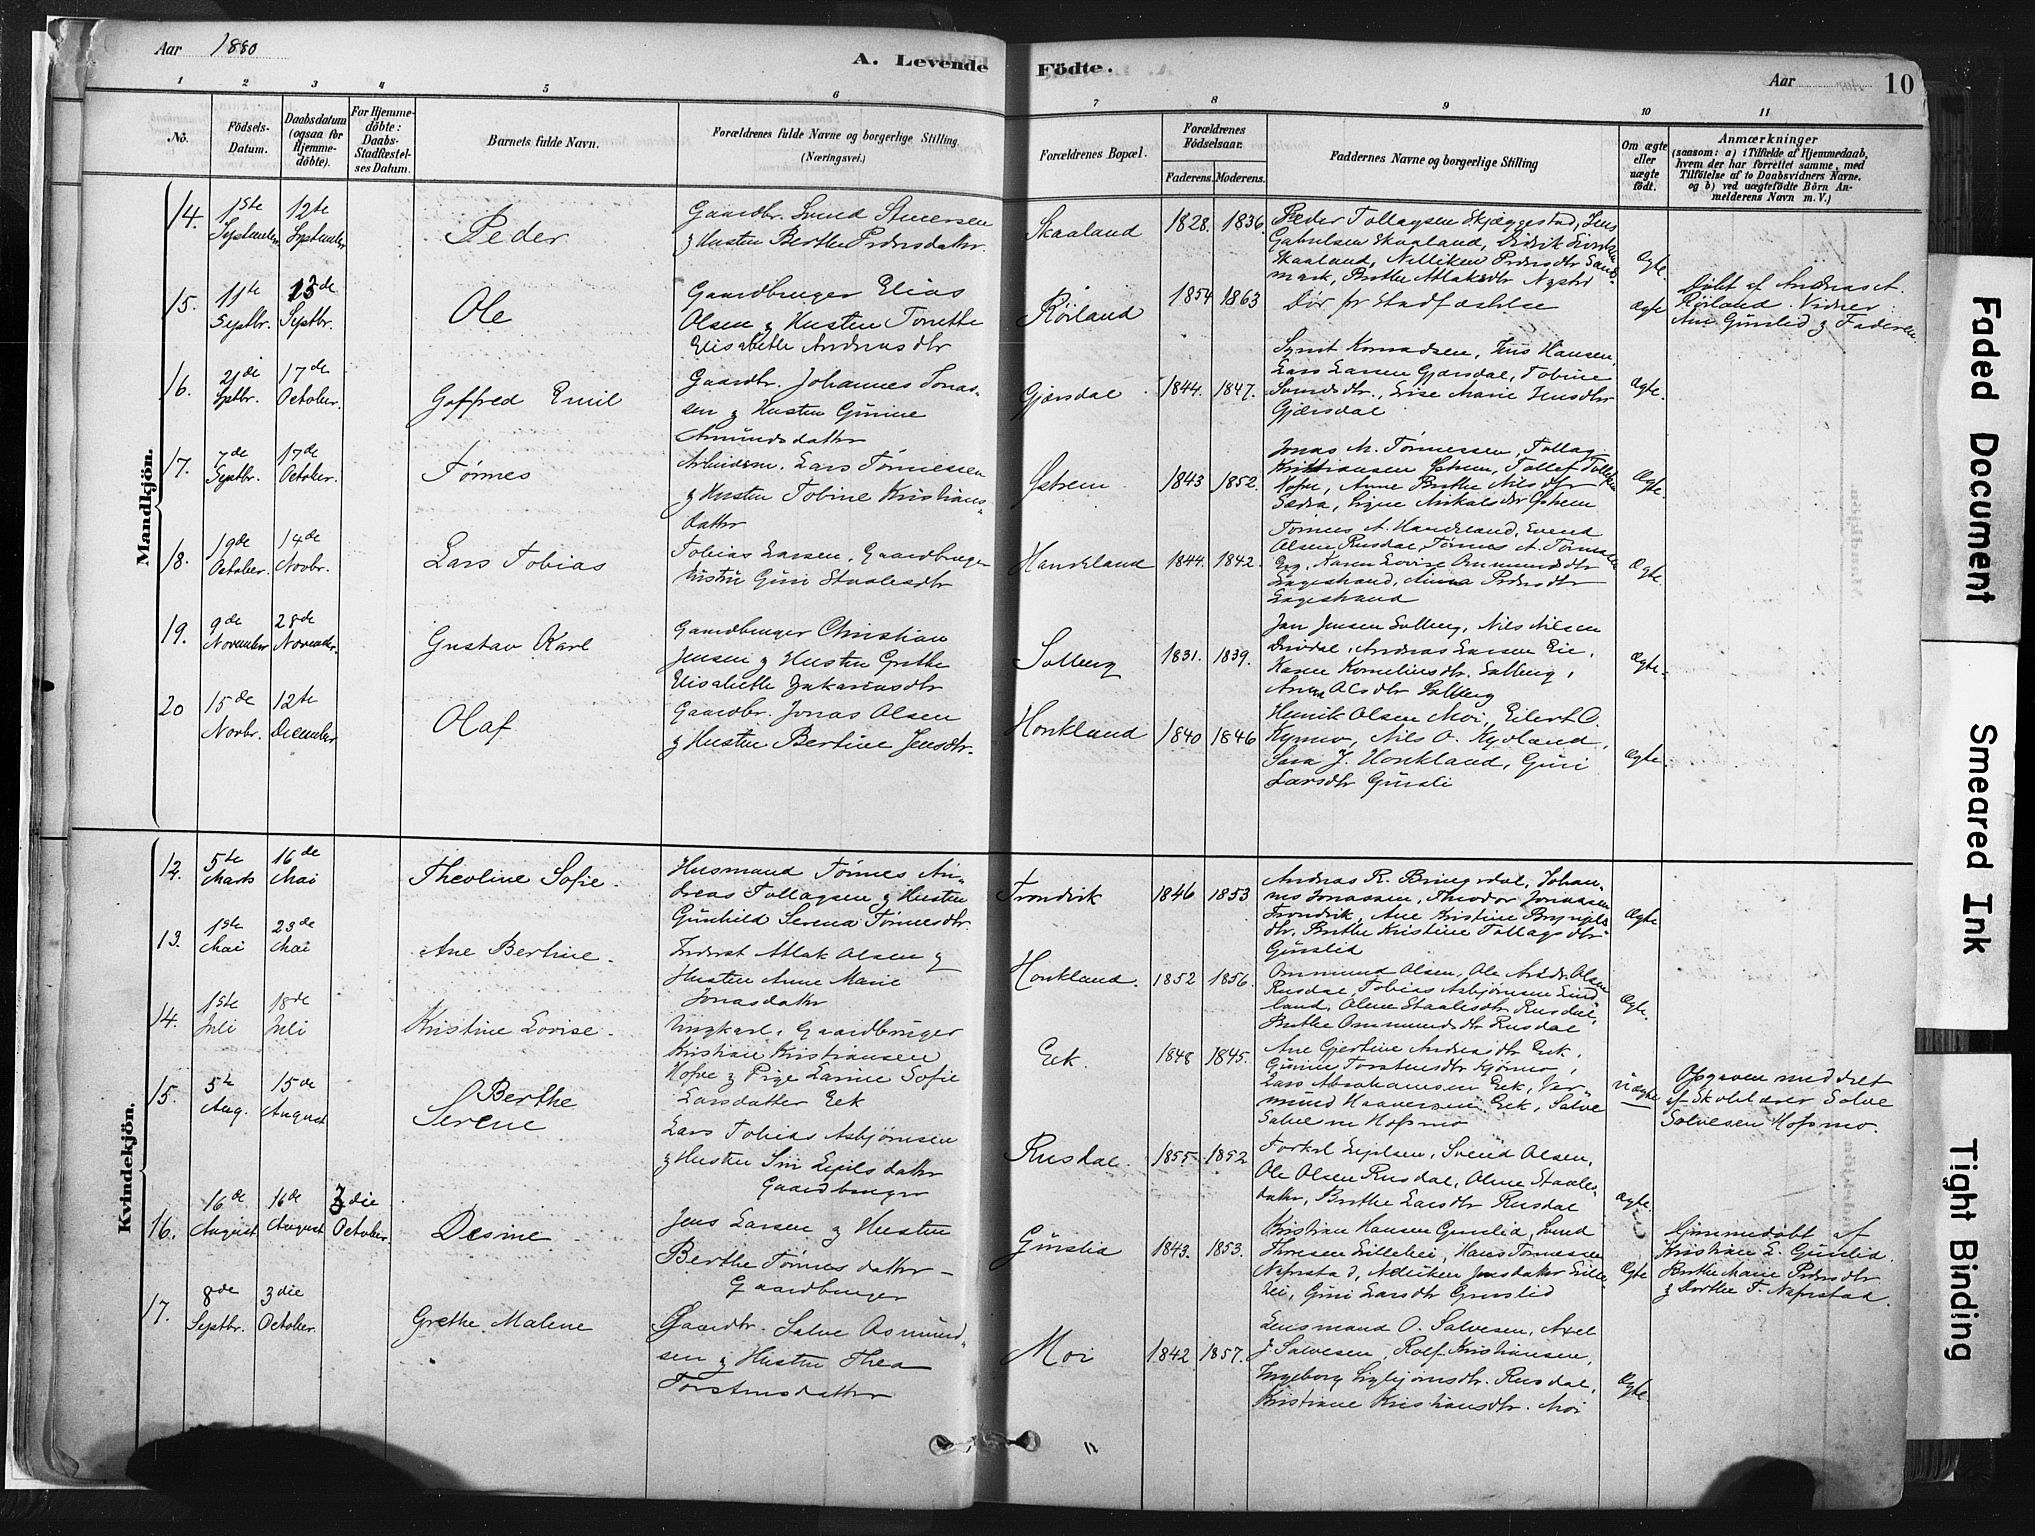 Aar 1880
A. Levende
Födte.
Aar
10
1 2 3 4 5 6
7 8 9 10 11
No.
Födsels-
Datum.
Daabsdatum
(ogsaa for
Hjemme-
döbte).
For Hjemme-
döbte:
Daabs-
Stadfæstel-
ses Datum.
Barnets fulde Navn.
Forældrenes fulde Navne og borgerlige Stilling
(Næringsvei.)
Forældrenes Bopæl.
Forældrenes
Födselsaar.
Faderens. Moderens.
Faddernes Navne og borgerlige Stilling
Om ægte
eller
uægte
födt.
Anmærkninger
(saasom: a) i Tilfælde af Hjemmedaab,
hvem der har forrettet samme, med
Tilföielse af to Daabsvidners Navne,
og b) ved uægtefödte Börn An-
melderens Navn m. V.)
Mandkjön.
14.
1ste
September
12te
September
Peder
Gaardbr. Svend Steenersen
& Hustru Berthe Pedersdatter.
Skaaland
1828. 1836.
Peder Tollagsen Skjæggestad, Jens
Gabrielsen Skaaland, Didrik
Skaaland,
Ægte.
15.
11te
Septbr.
13de
Septbr.
Ole
Gaardbruger Elias
Olsen & Hustru Tonette
Elisabeth Andreasdtr
Röiland
1854 1863
Dör før Stadfæstelse
Ægte
Döbt af Andreas A.
Röiland. Vidner
Ane Gunslid & Faderen
16.
21de
Septbr.
17de
October.
Gotfred Emil
Gaardbr. Johannes Jonas-
sen & Hustru Gunine
Amundsdatter
Gjersdal.
1844. 1847.
Lars Larsen Gjersdal, Tobine
Svendsdtr., Lise Marie Jensdtr
Gjersdal
Ægte.
17.
7de
Septbr.
17de
October.
Tørnes
Arbeidsm. Lars Tønnessen
& Hustru Tobine Kristians-
datter
Ystrem
1843 1852.
Jonas M. Tønnessen, Tollag
Kristiansen Ystrem, Tollef
Hofre, Anne Berthe Nilsdtr
Ægte.
18.
19de
October.
14de
Novbr.
Lars Tobias
Tobias Larsen, Gaardbruger
Hustru Guri Staalesdtr
Hankland
1844. 1842.
Tönnes A. Hankland, Svend
Olsen Rusdal, Tønnes A.
Eeg, Karen Lovise Ommundsdtr
Lægestrand, Anna Pedersdtr
Lægestrand
Ægte
19.
9de
November
28de
November.
Gustav Karl
Gaardbruger Christian
Jensen & Hustru Grethe
Elisabeth Zakariasdtr
Solberg
1831. 1839.
Jan Jensen Solberg, Nils Nilsen
Andreas Larsen Eie,
Karen Korneliusdtr. Solberg,
Anna Olsdtr Solberg
Ægte.
20
15de
Novbr.
12te
December
Olaf
Gaardbr. Jonas Olsen
& Hustru Bertine Jensdtr.
Honkland
1840 1846
Henrik Olsen Moi, Eilert C.
Nils O. Kydland,
Sara J. Honkland, Guri
Larsdtr Gunsli
Ægte.
Kvindekjön.
12.
5te
Marts
16de
Mai
Theoline Sofie.
Husmand Tønnes An-
dreas Tollagsen & Hustru
Gunhild Serena Tønnesdtr.
Trondvik
1846 1853
Andreas R. Bringsdal, Johan-
nes Jonassen, Theodor Jonassen
Trondvik, Ane Kristine
dtr. Berthe Kristine Tollagsdtr
Gunslid
Ægte
13.
1ste
Mai
23de
Mai
Ane Bertine.
Inderst Atlak Olsen &
Hustru Anne Marie
Jonasdatter
Honkland.
1852 1856.
Ommund Olsen, Ole Olsen
Rusdal, Tobias Asbjørnsen Lind
land, Olene Staalesdtr Rusdal,
Berthe Ommundsdtr Rusdal
Ægte.
14.
1ste
Juli
18de
Juli
Kristine Lovise.
Ungkarl, Gaardbruger
Kristian Kristiansen
Hofre & Pige Larine Sofie
Larsdatter Eek
Eek.
1848 1845.
Ane Gjertine Andreasdtr Eek,
Gunine Torstensdtr Kjörmo,
Lars Abrahamsen Eek, Ver
mund Haaversen Eek, Salve
Salvesen Hofsmo
Uægte
Opgaven meddelt
af Skolelærer Salve
Salvesen Hofsmo.
15.
5te
Aug.
15de
August
Berthe
Serene
Lars Tobias Asbjørnsen
& Hustru Siri Eyilsdatter
Gaardbruger
Rusdal.
1855 1852
Torkel Eyilsen, Svend Olsen,
Ole Olsen Rusdal, Olene Staales-
datter, Berthe Larsdtr Rusdal
Ægte.
16.
16de
August
16de
August
3die
October.
Desine
Jens Larsen & Hustru
Berthe Tønnesdatter -
Gaardbruger
Gunslid
1843. 1853.
Kristian Hansen Gunslid, Svend
Thoresen Lillebei, Hans Tønnesen
Nafrstad, Jensdatter Lille
bei, Guri Larsdtr Gunslid
Ægte
Hjemmedöbt af
Kristian L. Gunslid.
Berthe Marie Pedersdtr
& Dorthe T. Nafrstad.
17.
8de
Septbr.
3die
October.
Grethe Malene
Gaardbr. Salve Osmund-
sen & Hustru Thea
Torstensdatter
Moi
1842 1857.
Lensmand O. Salvesen, Axel
J. Salvesen, Rolf Kristiansen,
Ingeborg Sigbjørnsdtr. Rusdal,
Kristiane Kristiansdtr. Moi
Ægte.
Faded Document
Smeared Ink
Tight Binding